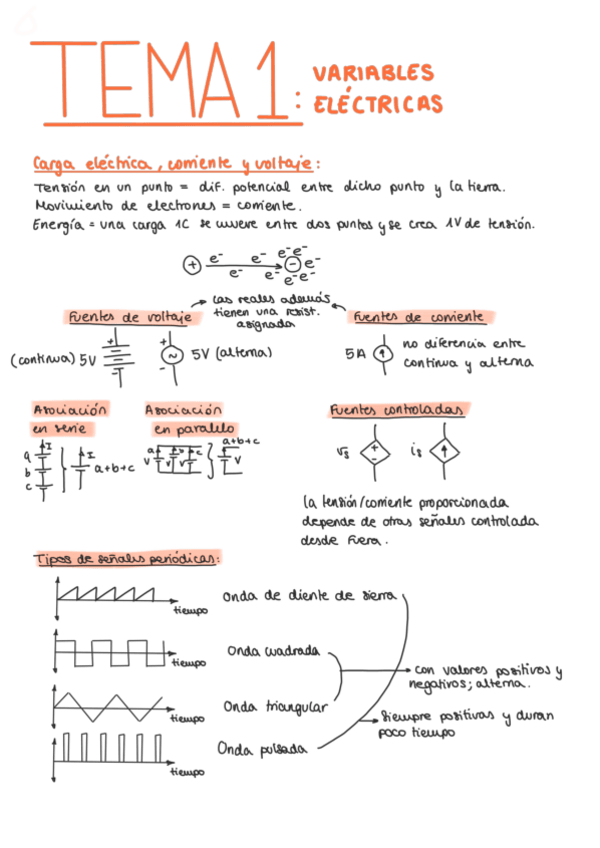 TEMA 1: VARIABLES
ELÉCTRICAS
Carga eléctrica, corriente y voltaje:
Tensión en un punto = dif. potencial entre dicho punto y la tierra.
Movimiento de electrones = corriente.
Energía = una carga 1C se mueve entre dos puntos y se crea 1V de tensión.
+ e- e- e- e- e- e- e- - e- e- e-
Las reales además
tienen una resist.
asignada
Fuentes de voltaje
Fuentes de corriente
(continua) 5V
+
-
+
~
-
5V (alterna)
5A
no diferencia entre
continua y alterna
Asociación
en serie
a
b
c
I
I
a+b+c
Asociación
en paralelo
a b c
V V V
a+b+c
V
Fuentes controladas
vs
+
-
is
la tensión/corriente proporcionada
depende de otras señales controlada
desde fuera.
Tipos de señales periódicas:
tiempo
Onda de diente de sierra
tiempo
Onda cuadrada
con valores positivos y
negativos; alterna.
tiempo
Onda triangular
Siempre positivas y duran
poco tiempo
tiempo
Onda pulsada